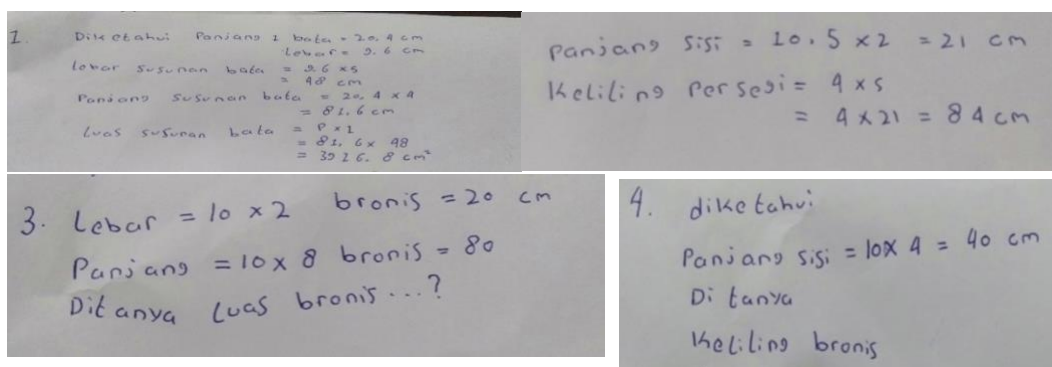 1. Diketahui Panjang 1 bata = 20,4 cm
Lebar = 9.6 cm
Lebar susunan bata = 9.6 x 5
= 48 cm
Panjang susunan bata = 20,4 x 4
= 81,6 cm
Luas susunan bata = P x l
= 81,6 x 48
= 3916.8 cm²
Panjang sisi = 10.5 x 2 = 21 cm
Keliling Persegi = 4 x s
= 4 x 21 = 84 cm
3. Lebar = 10 x 2 bronis = 20 cm
Panjang = 10 x 8 bronis = 80
Ditanya Luas bronis...?
4. diketahui
Panjang sisi = 10x 4 = 40 cm
Di tanya
Keliling bronis